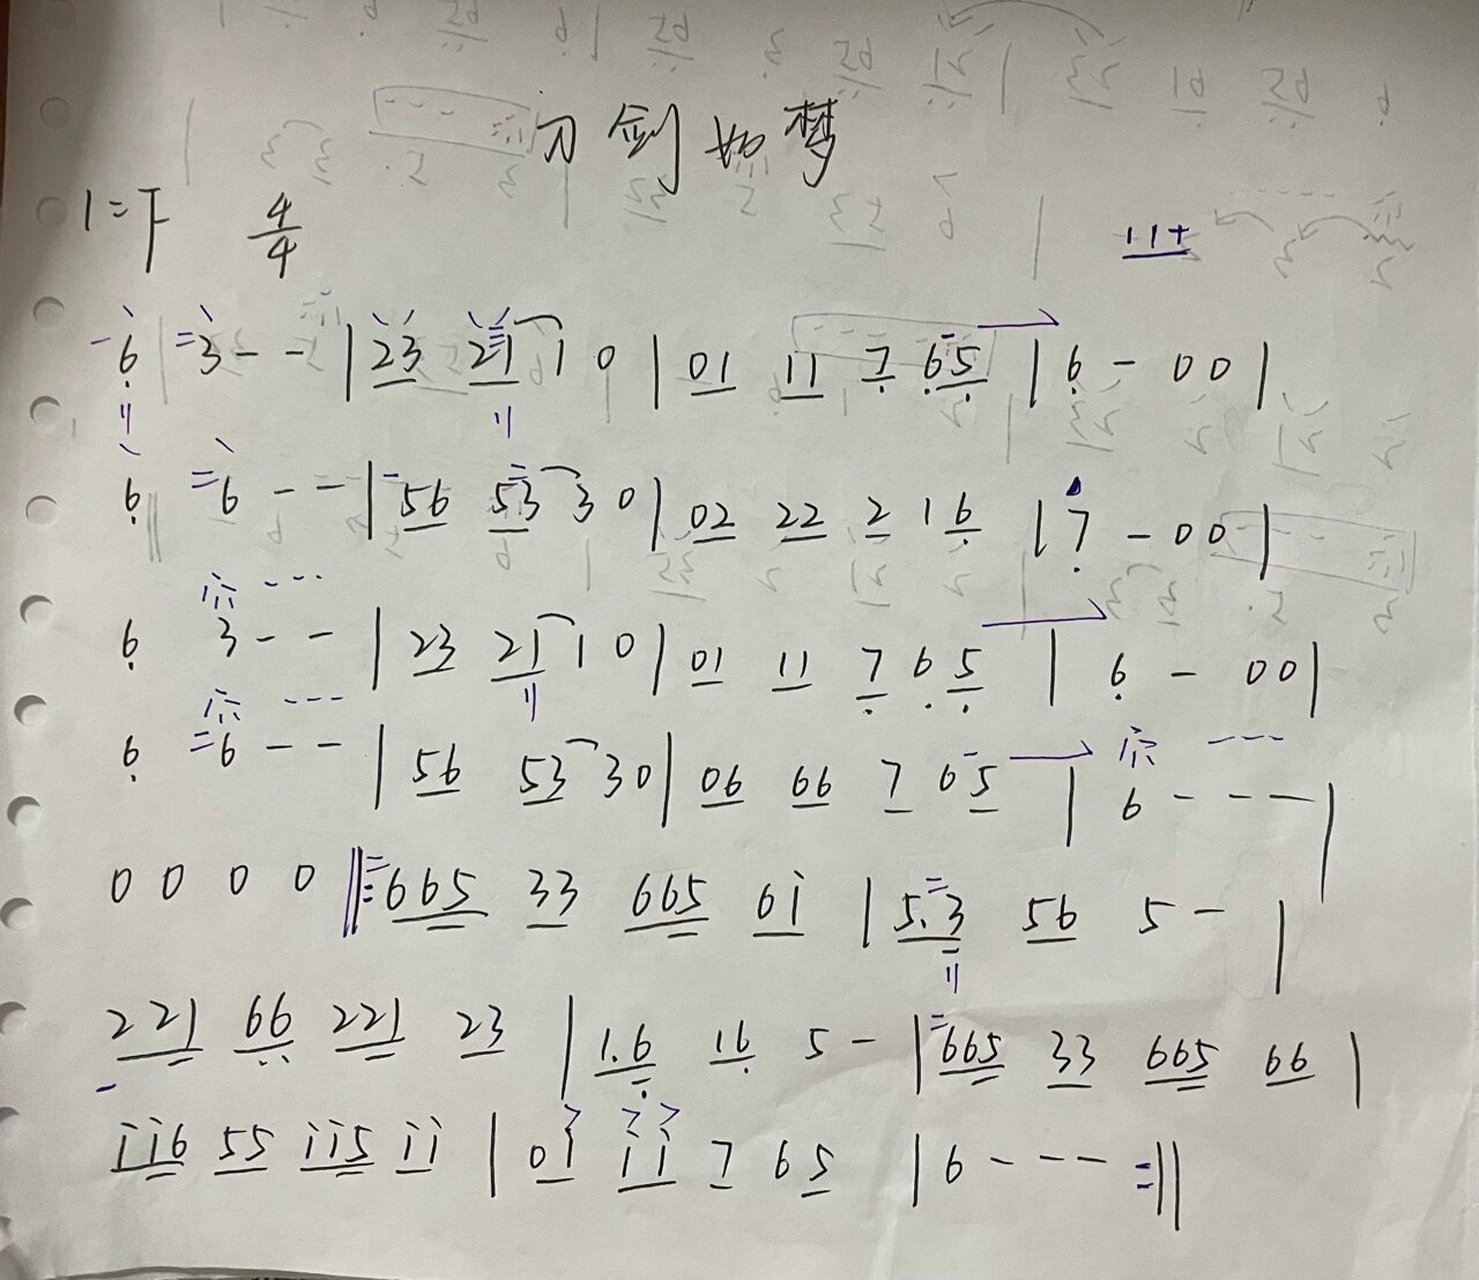 刀剑如梦
1=F 4/4
6 3 - - | 23 21 1 0 | 01 11 7 6 5 | 6 - 0 0 |
6 6 - - | 56 53 3 0 | 02 22 2 1 6 | 7 - 0 0 |
6 3 - - | 23 21 1 0 | 01 11 7 6 5 | 6 - 0 0 |
6 6 - - | 56 53 3 0 | 06 66 7 6 5 | 6 - - - |
0 0 0 0 ‖: 665 33 665 61 | 5.3 56 5 - |
221 66 221 23 | 1.6 16 5 - | 665 33 665 66 |
116 55 115 11 | 01 11 7 6 5 | 6 - - - :‖